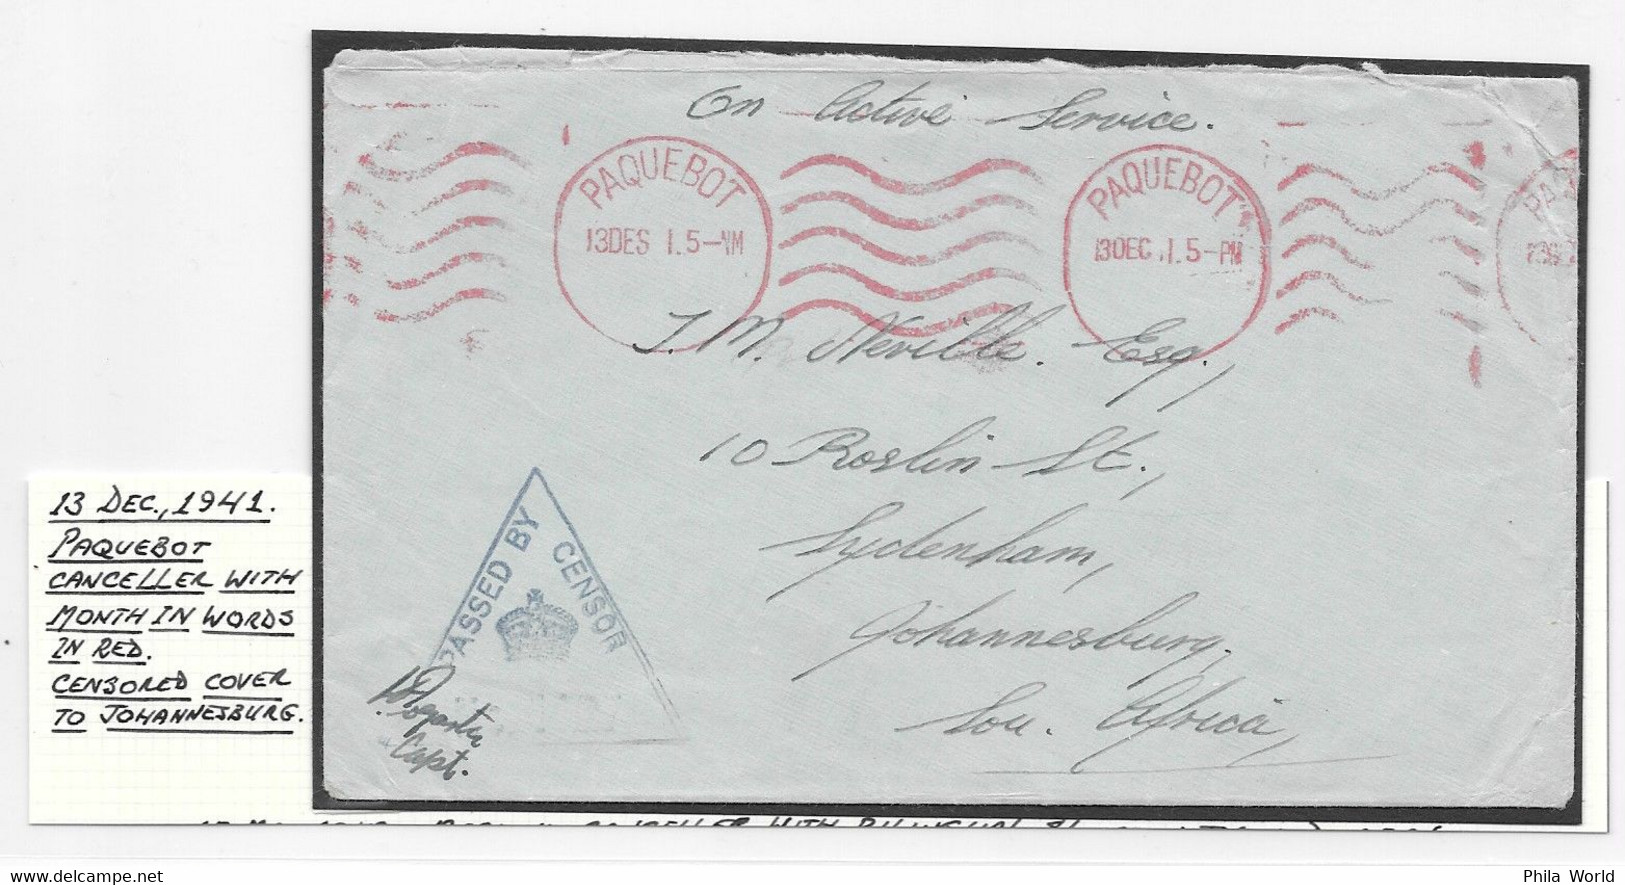 On Active Service.
PAQUEBOT
13DES 1.5-NM
PAQUEBOT
13DEC .1.5-PM
PA
J. M. Neville. Esq.,
10 Roslin St.,
Sydenham,
Johannesburg,
Sou. Africa,
PASSED BY CENSOR
Capt.
13 DEC., 1941.
PAQUEBOT
CANCELLER WITH
MONTH IN WORDS
IN RED.
CENSORED COVER
TO JOHANNESBURG.
© delcampe.net
Phila World